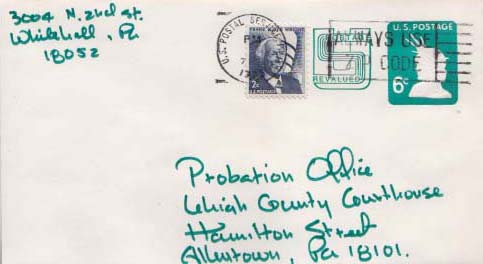 3004 N. 2nd St.
Whitehall, Pa
18052
U.S. POSTAL SE
PM
FRANK LLOYD WRIGHT
2¢
U.S. POSTAGE
REVALUED
ALWAYS USE
ZIP CODE
U.S. POSTAGE
6¢
Probation Office
Lehigh County Courthouse
Hamilton Street
Allentown, Pa 18101.